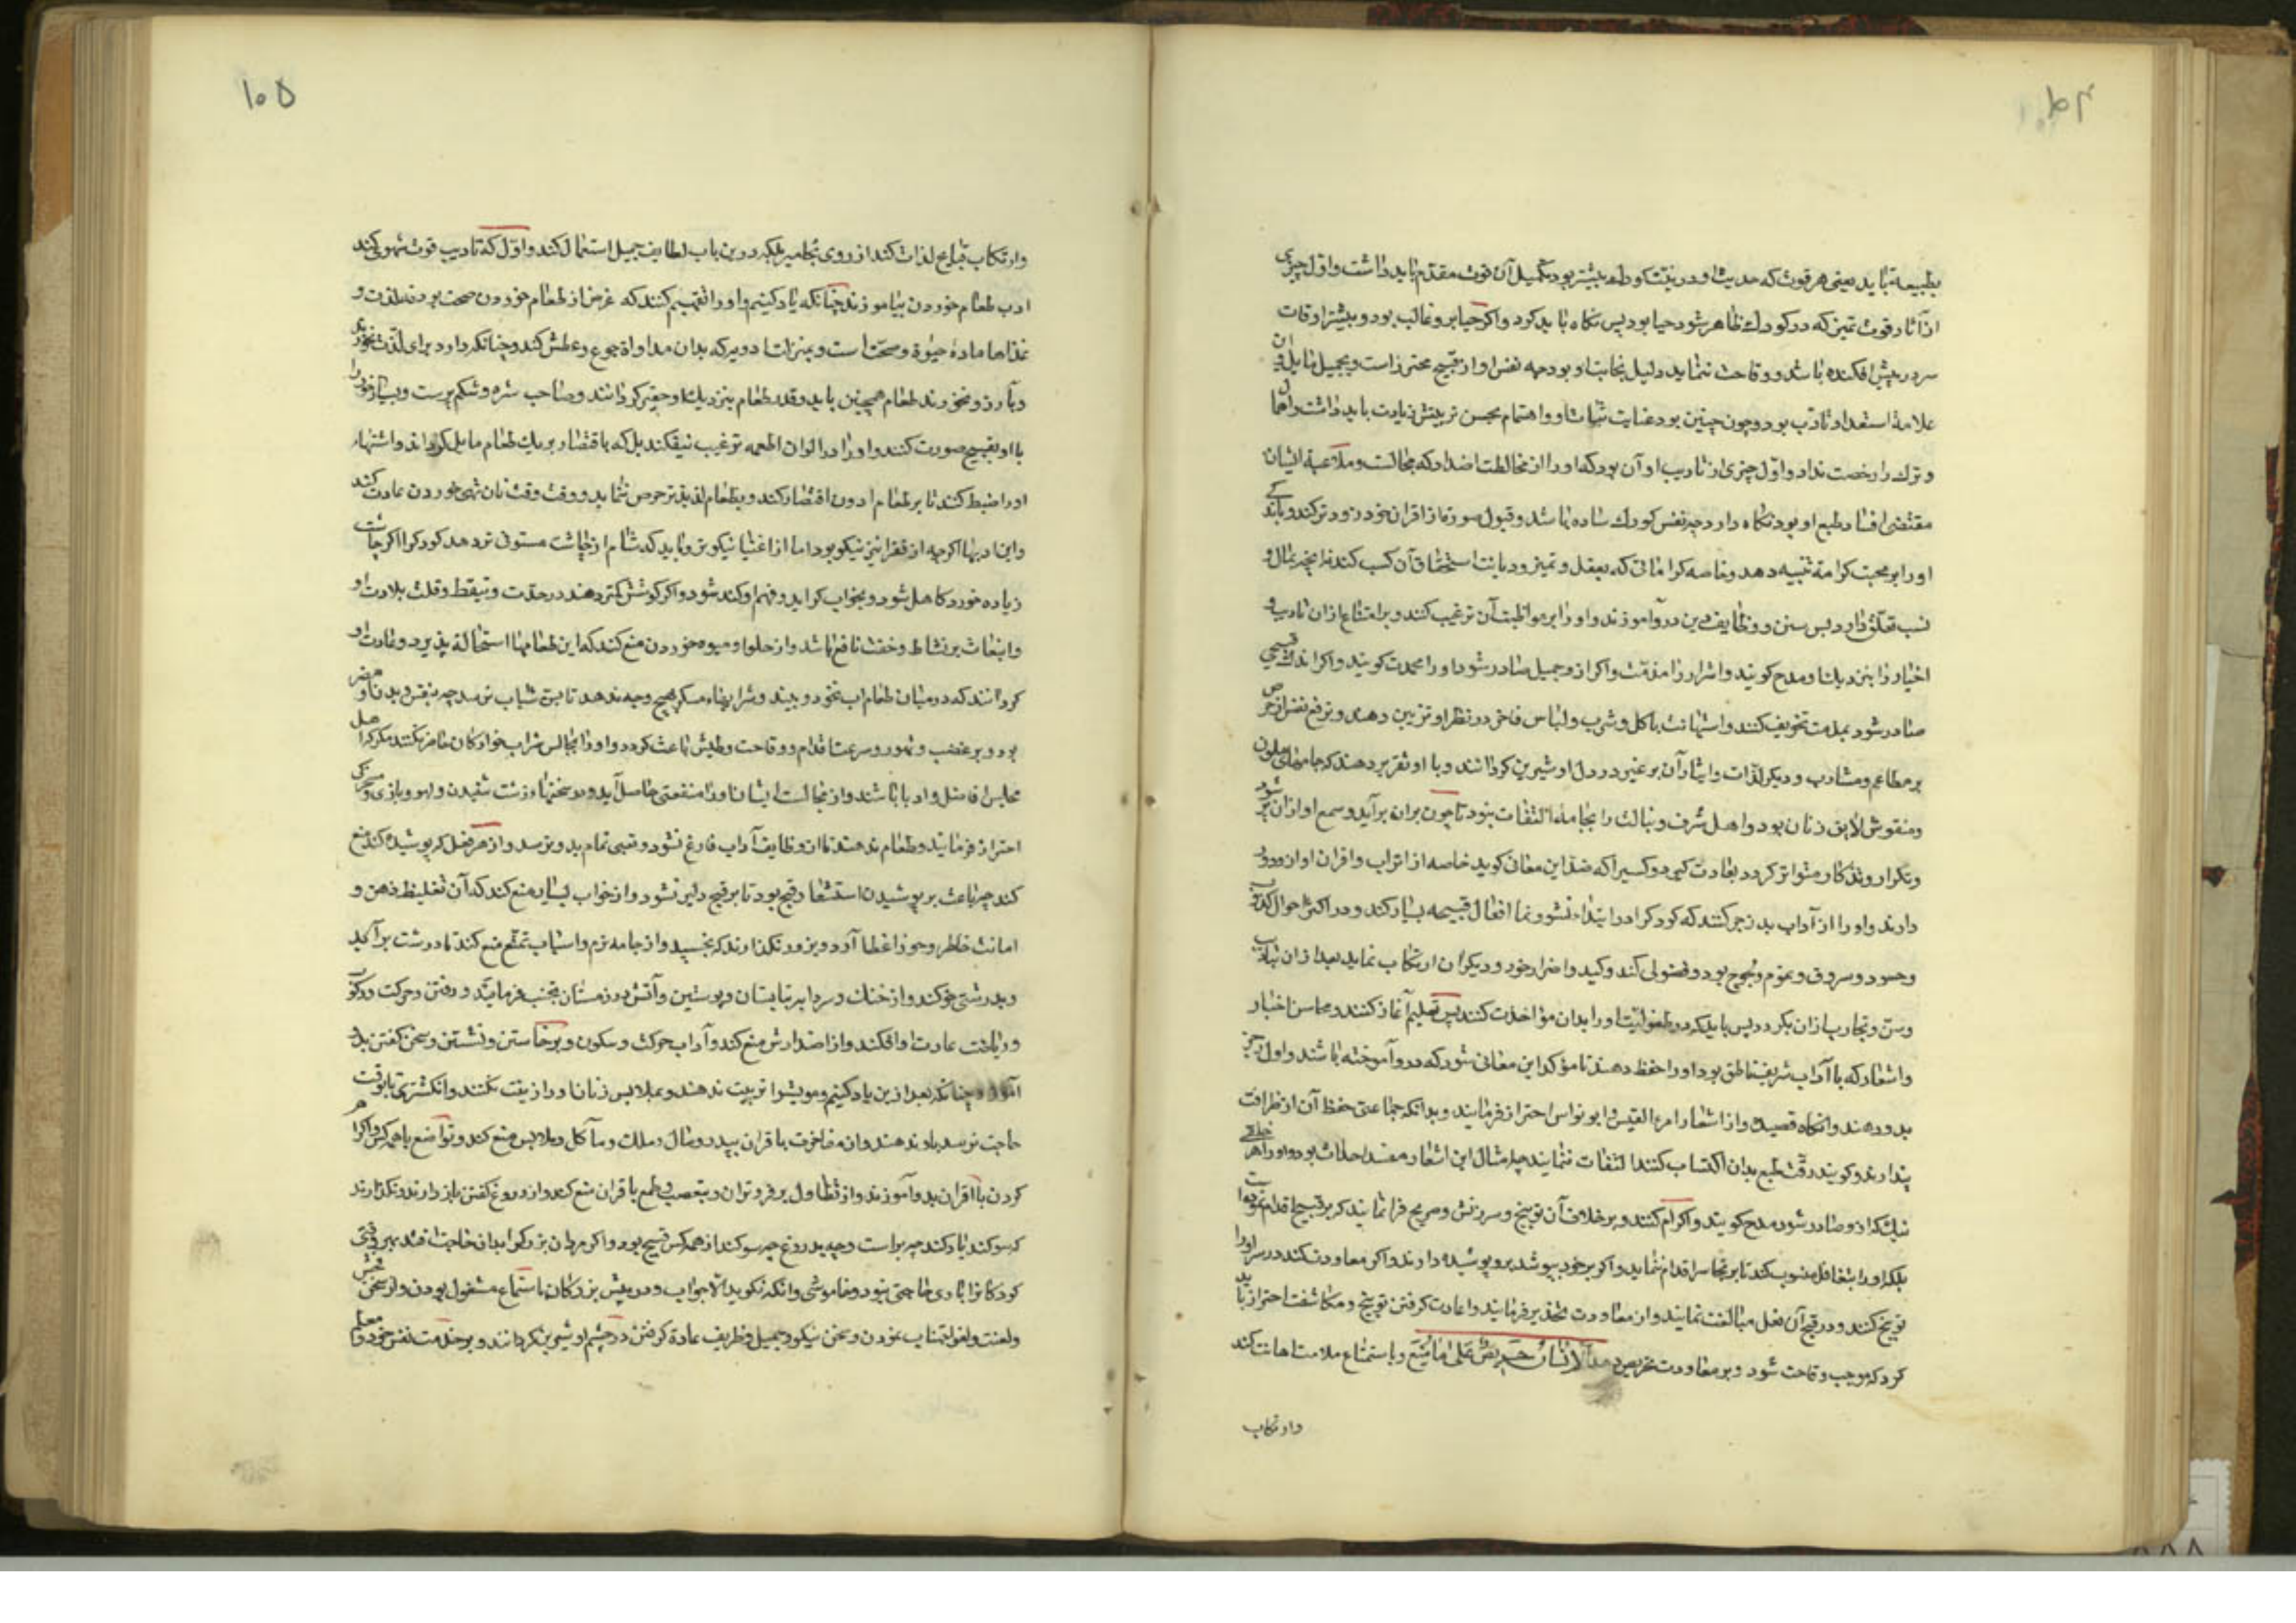 ۱۰۴
بطبیعة باید یعنی هر قوت که حدیث او در بنیت کودک بیشتر بود تکمیل آن قوت مقدم باید داشت و اول چیزی
از آثار قوت تمیز که در کودک ظاهر شود حیا بود پس نگاه باید کرد و اگر حیا برو غالب بود و بیشتر اوقات
سر در پیش افکنده باشد و وقاحت ننماید دلیل نجابت او بود چه نفس او از قبیح محترز است و بجمیل مایل و این
علامة استعداد تادب بود و چون چنین بود عنایت بتادیب او و اهتمام بحسن تربیتش زیادت باید داشت و اهمال
و ترک را رخصت نداد و اول چیزی از تادیب او آن بود که او را از مخالطت اضداد که مجالست و ملاعبة ایشان
مقتضی افساد طبع او بود نگاه دارد چه نفس کودک ساده باشد و قبول صورت از اقران خود زودتر کند و باید که
او را بر محبت کرامة تنبیه دهد و خاصه کراماتی که بعقل و تمیز و دیانت استحقاق آن کسب کنند نه آنچه بمال و
نسب تعلق دارد پس سنن و وظایف دین در و آموزند و او را بر مواظبت آن ترغیب کنند و بر امتناع از آن تادیب و
اخیار را بنزدیک او مدح گویند و اشرار را مذمت و اگر از و جمیل صادر شود او را محمدت گویند و اگر اندک قبیحی
صادر شود بمذمت تخویف کنند و استهانت باکل و شرب و لباس فاخر در نظر او تزیین دهند و ترفع نفس از حرص
بر مطاعم و مشارب و دیگر لذات و ایثار آن بر غیر در دل او شیرین گردانند و با او تقریر دهند که جامهای ملون
و منقوش لایق زنان بود و اهل شرف و نبالت را بجامه التفات نبود تا چون بران برآید و سمع او از ان پر شود
و تکرار و تذکار متواتر گردد بعادت گیرد و کسی را که ضد این معانی گوید خاصه از اتراب و اقران او از و دور
دارند و او را از آداب بد زجر کنند که کودک را در ابتداء نشو و نما افعال قبیحه بسیار کند و در اکثر احوال کذوب
و حسود و سروق و نموم و لجوج بود و فضولی کند و کید و اضرار خود و دیگران ارتکاب نماید بعد از ان بتادیب
و سن و تجارب از ان بگردد پس باید که در طفولیت او را بدان مؤاخذت کنند پس تعلیم آغاز کنند و محاسن اخبار
و اشعار که با آداب شریف ناطق بود او را حفظ دهند تا مؤکد این معانی شود که در و آموخته باشند و اول رجز
بدو دهند و آنگاه قصیده و از اشعار امرء القیس و ابو نواس احتراز فرمایند و بدانکه جماعتی حفظ آن از ظرافت
پندارند و گویند رقت طبع بدان اکتساب کنند التفات ننمایند چه امثال این اشعار مفسد احداث بود و او را بهر خلقی
نیک که از و صادر شود مدح گویند و اکرام کنند و بر خلاف آن توبیخ و سرزنش و صریح فرا ننمایند که بر قبیح اقدام نموده است
بلکه او را بتغافل منسوب کنند تا بر تجاسر اقدام ننماید و اگر بر خود بپوشد برو پوشیده دارند و اگر معاودت کند در سر او را
توبیخ کنند و در قبح آن فعل مبالغت نمایند و از معاودت تحذیر فرمایند و از عادت گرفتن توبیخ و مکاشفت احتراز باید
کرد که موجب وقاحت شود و بر معاودت تحریص دهد الانسان حریص علی ما منع و باستماع ملامت اهانت کند
وارتکاب
۱۰۵
وارتکاب قبایح لذات کند از روی تجاسر بلکه درین باب لطایف حیل استعمال کنند و اول که تادیب قوت شهوی کنند
ادب طعام خوردن بیاموزند چنانکه یاد کنیم و او را تفهیم کنند که غرض از طعام خوردن صحت بود نه لذت و
غذاها مادهٔ حیوة و صحت است و بمنزلت ادویه که بدان مداواة جوع و عطش کنند و چنانکه دارو برای لذت نخورند
و بآرزو نخورند طعام همچنین باید و قدر طعام بنزدیک او حقیر گردانند و صاحب شره و شکم پرست و بسیار خوار را
با او بقبیح صورت کنند و او را در الوان اطعمه ترغیب نیفکنند بل که باقتصار بر یک طعام مایل گردانند و اشتهاء
او را ضبط کنند تا بر طعام ادون اقتصار کند و بطعام لذیذتر حرص ننماید و وقت وقت نان تهی خوردن عادت کند
و این ادبها اگر چه از فقرا نیز نیکو بود اما از اغنیا نیکوتر و باید که شام از چاشت مستوفی‌تر دهد کودک را اگر چاشت
زیاده خورد کاهل شود و بخواب گراید و فهم او کند شود و اگر گوشش کمتر دهند در حدت و تیقظ و قلت بلادت او
و انبعاث بر نشاط و خفت نافع باشد و از حلوا و میوه خوردن منع کنند که این طعامها استحالة پذیرد و عادت او
گردانند که در میان طعام آب نخورد و نبیذ و شرابهاء مسکر بهیچ وجه ندهد تا بسن شباب نرسد چه بنفس و بدن او مضر
بود و بر غضب و تهور و سرعت اقدام و وقاحت و طیش باعث گردد و او را بمجالس شراب خوارگان حاضر نکنند مگر که اهل
مجلس افاضل و ادبا باشند و از مجالست ایشان او را منفعتی حاصل آید و از سخنهاء زشت شنیدن و لهو و بازی و مسخرگی
احتراز فرمایند و طعام ندهند تا از وظایف آداب فارغ نشود و تعبی تمام بدو نرسد و از هر فعل که پوشیده کند منع
کنند چه باعث بر پوشیدن استشعار قبح بود تا بر قبیح دلیر نشود و از خواب بسیار منع کنند که آن تغلیظ ذهن و
اماتت خاطر و خور اعضا آرد و بروز نگذارند که بخسپد و از جامه نرم و اسباب تمتع منع کنند تا درشت برآید
و بدرشتی خو کند و از خنک و سردابه بتابستان و پوستین و آتش در زمستان تجنب فرمایند و رفتن و حرکت و رکوب
و ریاضت عادت او افکنند و از اضدادش منع کنند و آداب حرکت و سکون و برخاستن و نشستن و سخن گفتن بدو
آموزند چنانکه بعد ازین یاد کنیم و مویش را تربیت ندهند و بملابس زنان او را زینت نکنند و انگشتری تا بوقت
حاجت نرسد بدو ندهند و از مفاخرت با اقران بپدر و مال و ملک و مآکل و ملابس منع کنند و تواضع با همه کس و اکرام
کردن با اقران بدو آموزند و از تطاول بر فروتران و تعصب و طمع باقران منع کنند و از دروغ گفتن باز دارند و نگذارند
که سوگند یاد کند چه براست و چه بدروغ چه سوگند از همه کس قبیح بود و اگر مردان بزرگ را بدان حاجت افتد بهر وقتی
کودکان را باری حاجتی نبود و خاموشی و آنکه نگوید الا جواب و در پیش بزرگان باستماع مشغول بودن و از سخن فحش
و لعنت و لغو اجتناب نمودن و سخن نیکو و جمیل و ظریف عادة گرفتن در چشم او شیرین گردانند و بر خدمت نفس خود و معلم